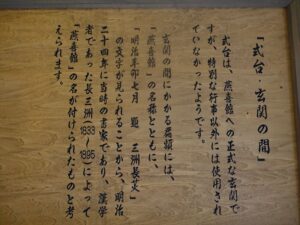 「式台・玄関の間」
式台は、燕喜館への正式な玄関で
すが、特別な行事以外には使用され
ていなかったようです。
玄関の間にかかる扁額には、
「燕喜館」の名様とともに、
「明治辛卯七月　題　三洲長芠」
の文字が見られることから、明治
二十四年に当時の書家であり、漢学
者であった長三洲(1833
～1895)によって
「燕喜館」の名が付けられたものと考
えられます。